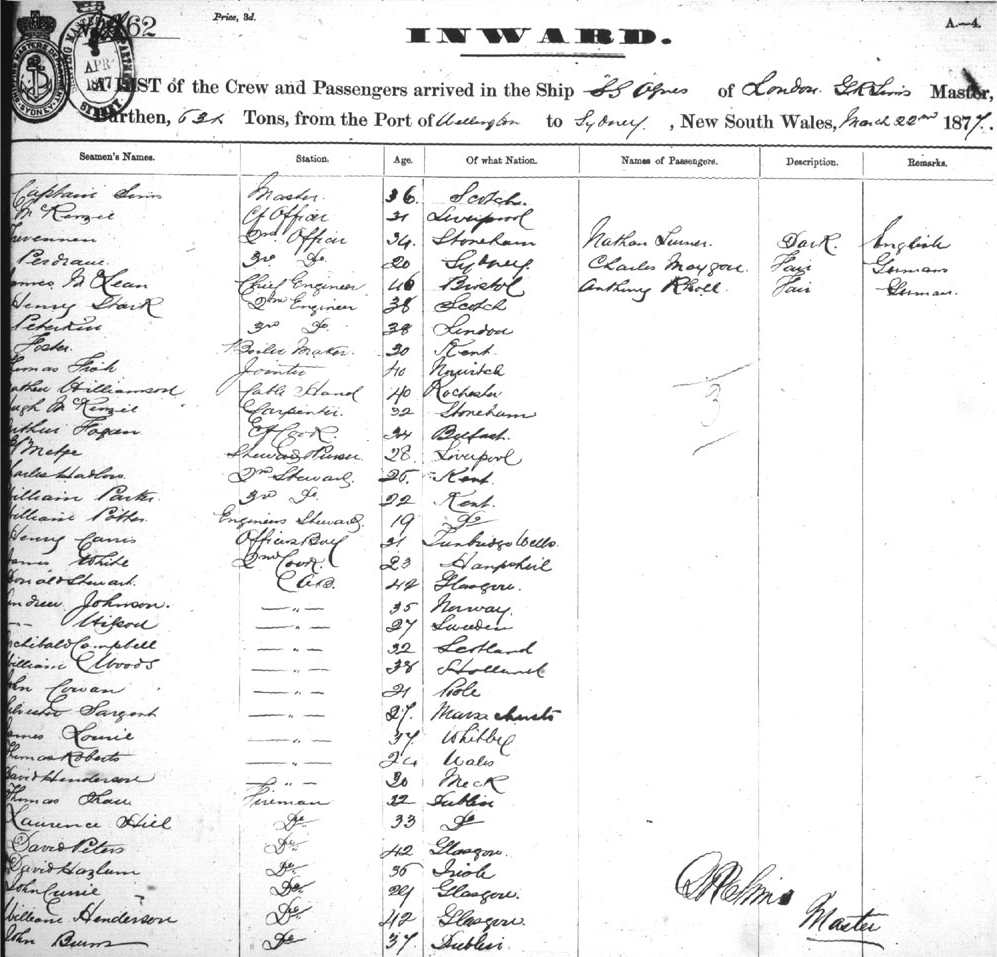 62
Price, 3d.
A.—4.
INWARD.
A LIST of the Crew and Passengers arrived in the Ship SS Agnes of London G R Sims Master,
Burthen, Tons, from the Port of Wellington to Sydney, New South Wales, March 22nd 1877.
Seamen's Names. Station. Age. Of what Nation. Names of Passengers. Description. Remarks.
Captain Sims Master. 36 Scotch.
McKenzie Cf Officer 31 Liverpool
Trevennen 2nd Officer 34 Stoneham Nathan Turner. Dark. English
3rd Do 20 Sydney. Charles Fair German
James McLean Chief Engineer 46 Bristol Anthony Fair German.
Henry Stark 2nd Engineer 38 Scotch
3rd Do 38 London
Foster. Boiler Maker. 30 Kent.
Thomas Jointer 40 Norwitch
Williamson Cable Hand 40 Rochester
Hugh McKenzie Carpenter. 32 Stoneham
Arthur Fagan Cf Cook. 34 Belfast.
28. Liverpool
Charles 2nd Steward. 25. Kent.
William Parker. 3rd Do. 22 Kent.
William Engineers Steward. 19 Do
Henry Officers Boy 21 Tunbridge Wells.
James White 2nd Cook. 23
Donald Stewart. A.B. 42 Glasgow.
Andrew Johnson. — „ — 35 Norway.
— — Wilson — „ — 27 Sweden
Archibald Campbell — „ — 32 Scotland
William Woods — „ — 38
John Cowan — „ — 21
Sargent — „ — 27.
James Lowrie — „ — 37 Whitby
Thomas Roberts — „ — Wales
David Henderson — „ — 30
Thomas Fireman 32 Dublin
Laurence Hill Do 33 Do
David Peters Do 42 Glasgow.
David Do
John Currie Do 29 Glasgow.
William Henderson Do 42 Glasgow.
John Burns Do 37 Dublin.
3
G R Sims
Master